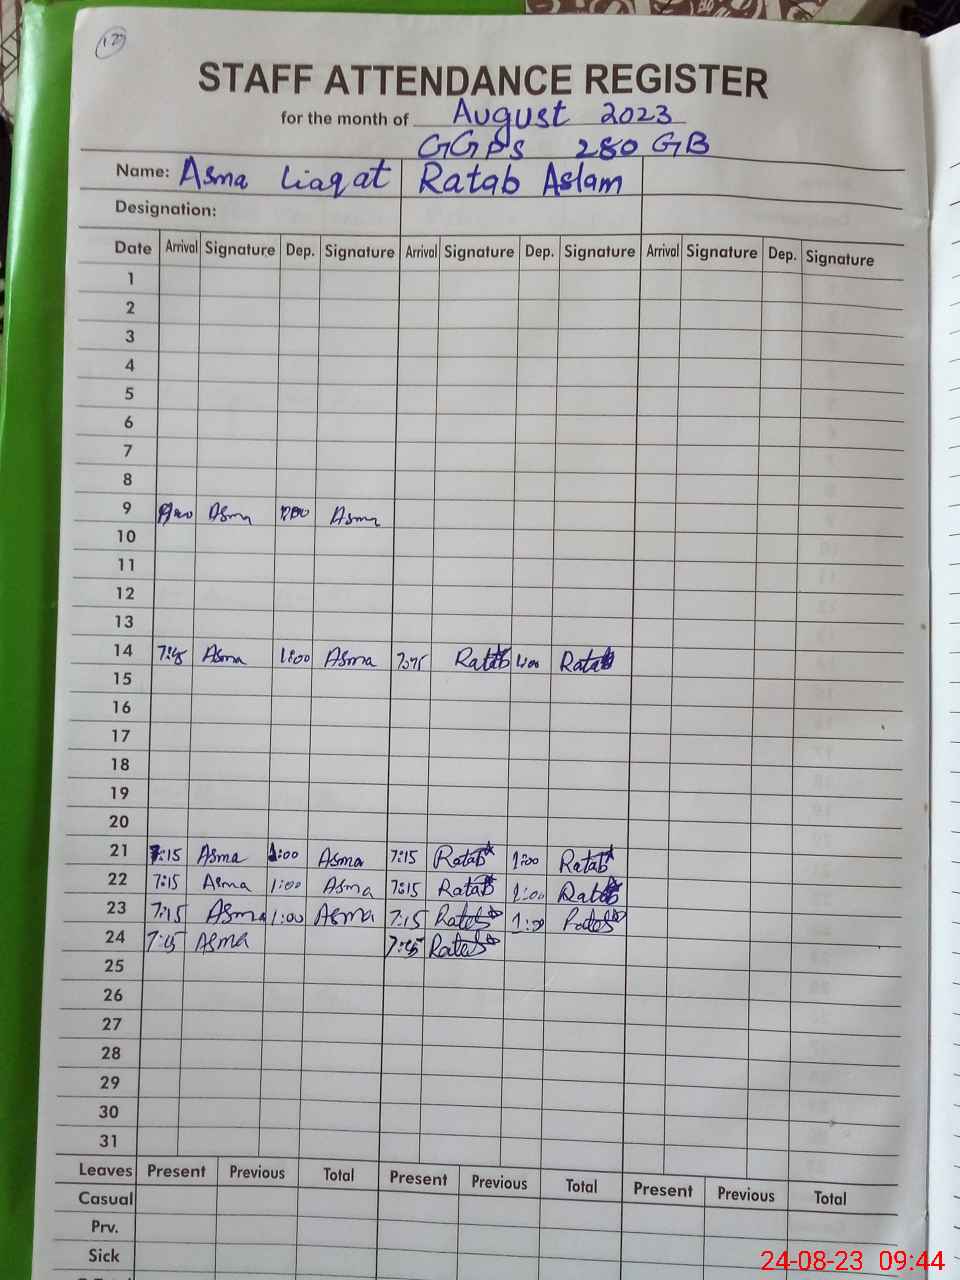 12
STAFF ATTENDANCE REGISTER
for the month of August 2023
GGPS 280 GB
Name: Asma Liaqat Ratab Aslam
Designation:
Date Arrival Signature Dep. Signature Arrival Signature Dep. Signature Arrival Signature Dep. Signature
1
2
3
4
5
6
7
8
9 Asma Asma
10
11
12
13
14 7:45 Asma 1:00 Asma Ratab 1:00 Ratab
15
16
17
18
19
20
21 7:15 Asma 1:00 Asma 7:15 Ratab 1:00 Ratab
22 7:15 Asma 1:00 Asma 7:15 Ratab 1:00 Ratab
23 7:15 Asma 1:00 Asma 7:15 Ratab 1:00 Ratab
24 7:45 Asma 7:45 Ratab
25
26
27
28
29
30
31
Leaves Present Previous Total Present Previous Total Present Previous Total
Casual
Prv.
Sick
24-08-23 09:44